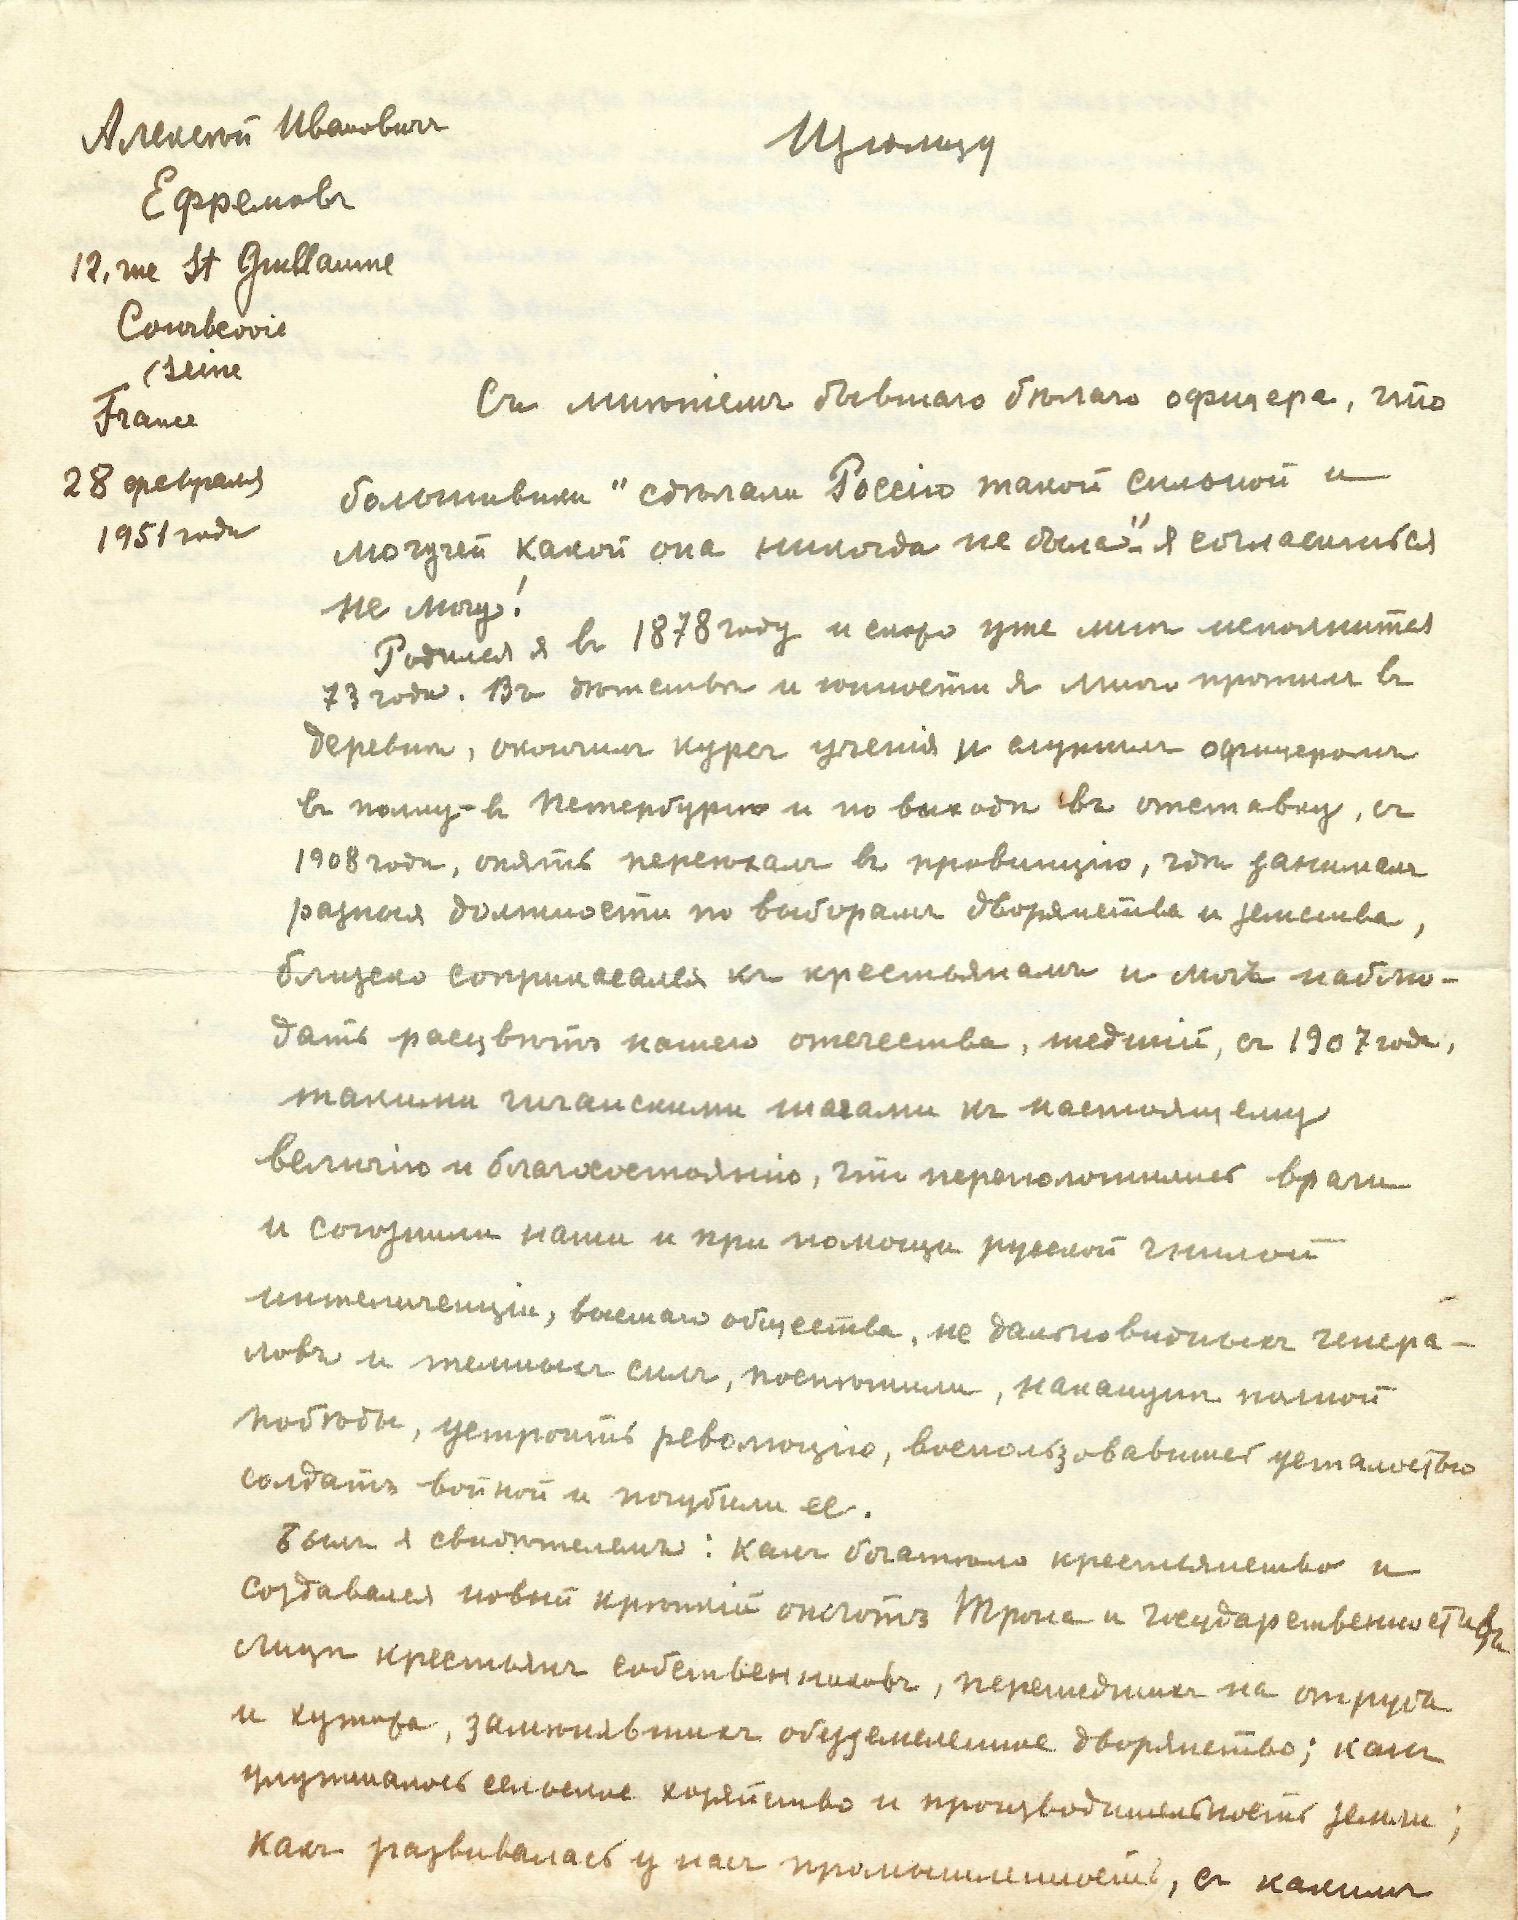 Алексѣй Ивановичъ
Ефремовъ
12, rue St Guillaume
Courbevoie
(Seine
France
28 февраля
1951 года
Съ мнѣніемъ бывшаго бѣлаго офицера, что
большевики "сдѣлали Россію такой сильной и
могучей какой она никогда не была" - я согласиться
не могу!
Родился я въ 1878 году и скоро уже мнѣ исполнится
73 года. Въ дѣтствѣ и юности я много прожилъ въ
деревнѣ, окончилъ курсъ ученія и служилъ офицеромъ
въ полку - въ Петербургѣ и по выходѣ въ отставку, съ
1908 года, опять переѣхалъ въ провинцію, гдѣ занималъ
разныя должности по выборамъ дворянства и земства,
близско соприкасался къ крестьянамъ и могъ наблю-
дать расцвѣтъ нашего отечества, шедшій, съ 1907 года,
такими гигансскими шагами къ настоящему
величію и благосостоянію, что переполошились враги
и союзники наши и при помощи русской гнилой
интелигенціи, высшаго общества, не дальновидныхъ генера-
ловъ и темныхъ силъ, поспѣшили, наканунѣ полной
побѣды, устроить революцію, воспользовавшись усталостью
солдатъ войной и погубили ее.
Былъ я свидѣтелемъ: какъ богатѣло крестьянство и
создавался новый крѣпкій оплотъ Трона и Государственности въ
лицѣ крестьянъ собственниковъ, перешедшихъ на отруба
и хутора, замѣнявшихъ обезземеленное дворянство; какъ
улучшалось сельское хозяйство и производительность земли;
какъ развивалась у насъ промышленность, съ какимъ